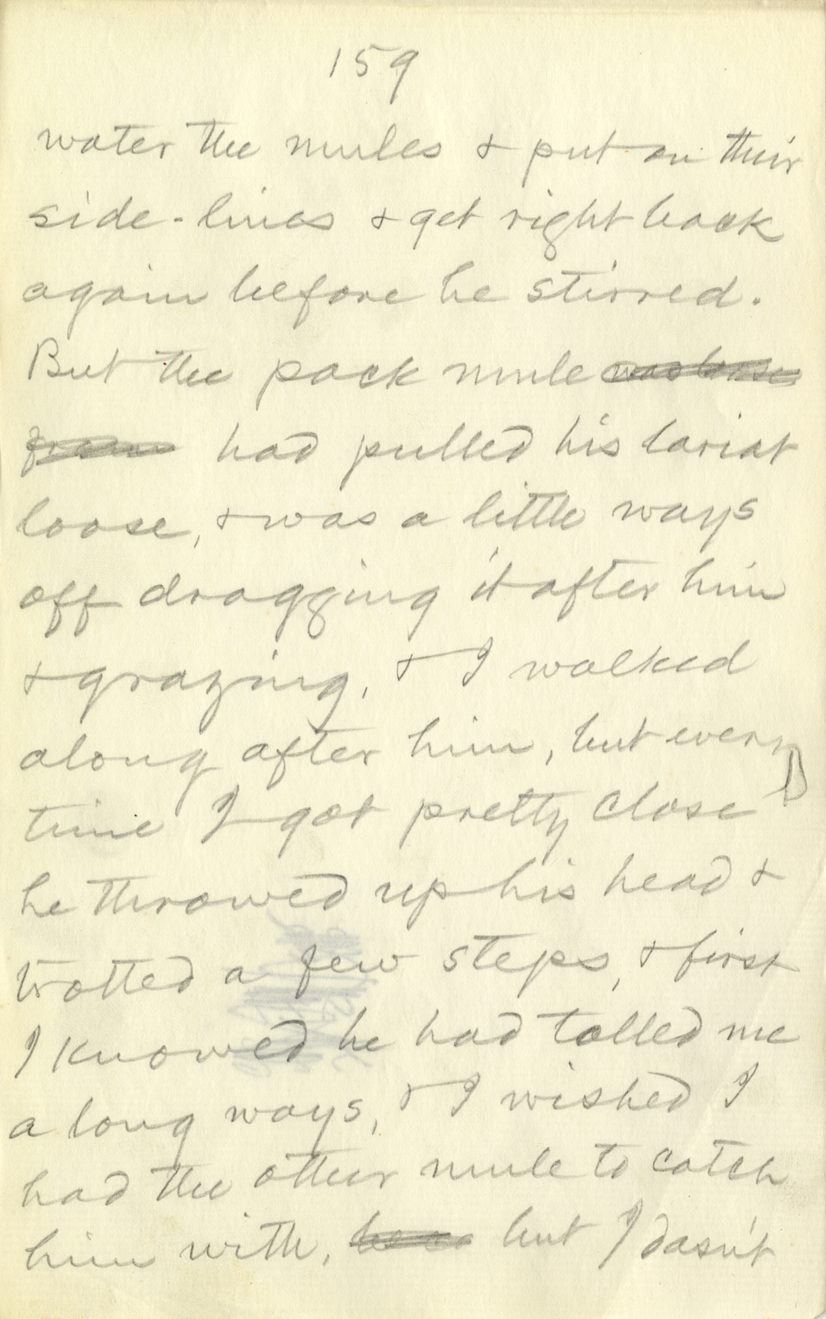 159
water the mules & put on their
side-lines & get right back
again before he stirred.
But the pack mule
had pulled his lariat
loose, & was a little ways
off dragging it after him
& grazing, & I walked
along after him, but every
time I got pretty close
he throwed up his head &
trotted a few steps, & first
I knowed he had tolled me
a long ways, & I wished I
had the other mule to catch
him with, but I dasn't